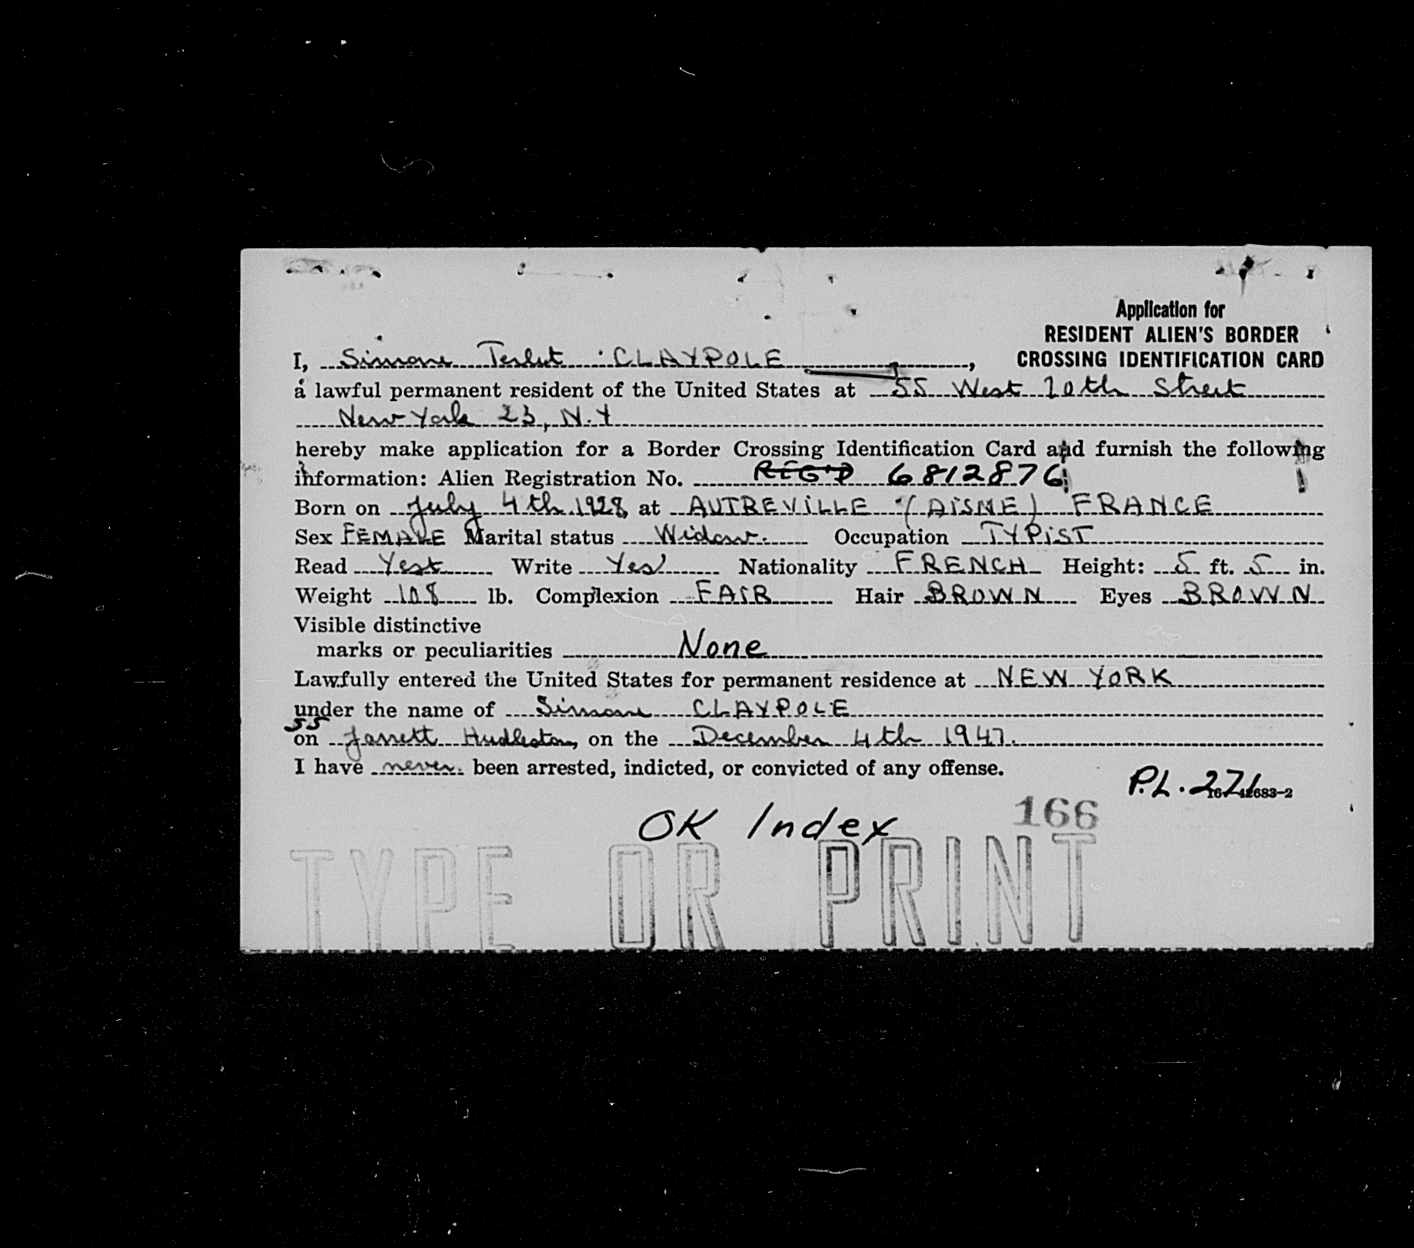 Application for
RESIDENT ALIEN'S BORDER
CROSSING IDENTIFICATION CARD
I, Simone CLAYPOLE,
a lawful permanent resident of the United States at 55 West 70th Street
New York 23, N.Y
hereby make application for a Border Crossing Identification Card and furnish the following
information: Alien Registration No. REG'D 6812876
Born on July 4th 1928, at AUTREVILLE (AISNE) FRANCE
Sex FEMALE Marital status Widow. Occupation TYPIST
Read Yes Write Yes Nationality FRENCH Height: 5 ft. 5 in.
Weight 108 lb. Complexion FAIR Hair BROWN Eyes BROWN
Visible distinctive
marks or peculiarities None
Lawfully entered the United States for permanent residence at NEW YORK
under the name of Simone CLAYPOLE
SS
on Jarrett Hudleston, on the December 4th 1947.
I have never. been arrested, indicted, or convicted of any offense.
P.L. 271
OK Index
166
TYPE OR PRINT